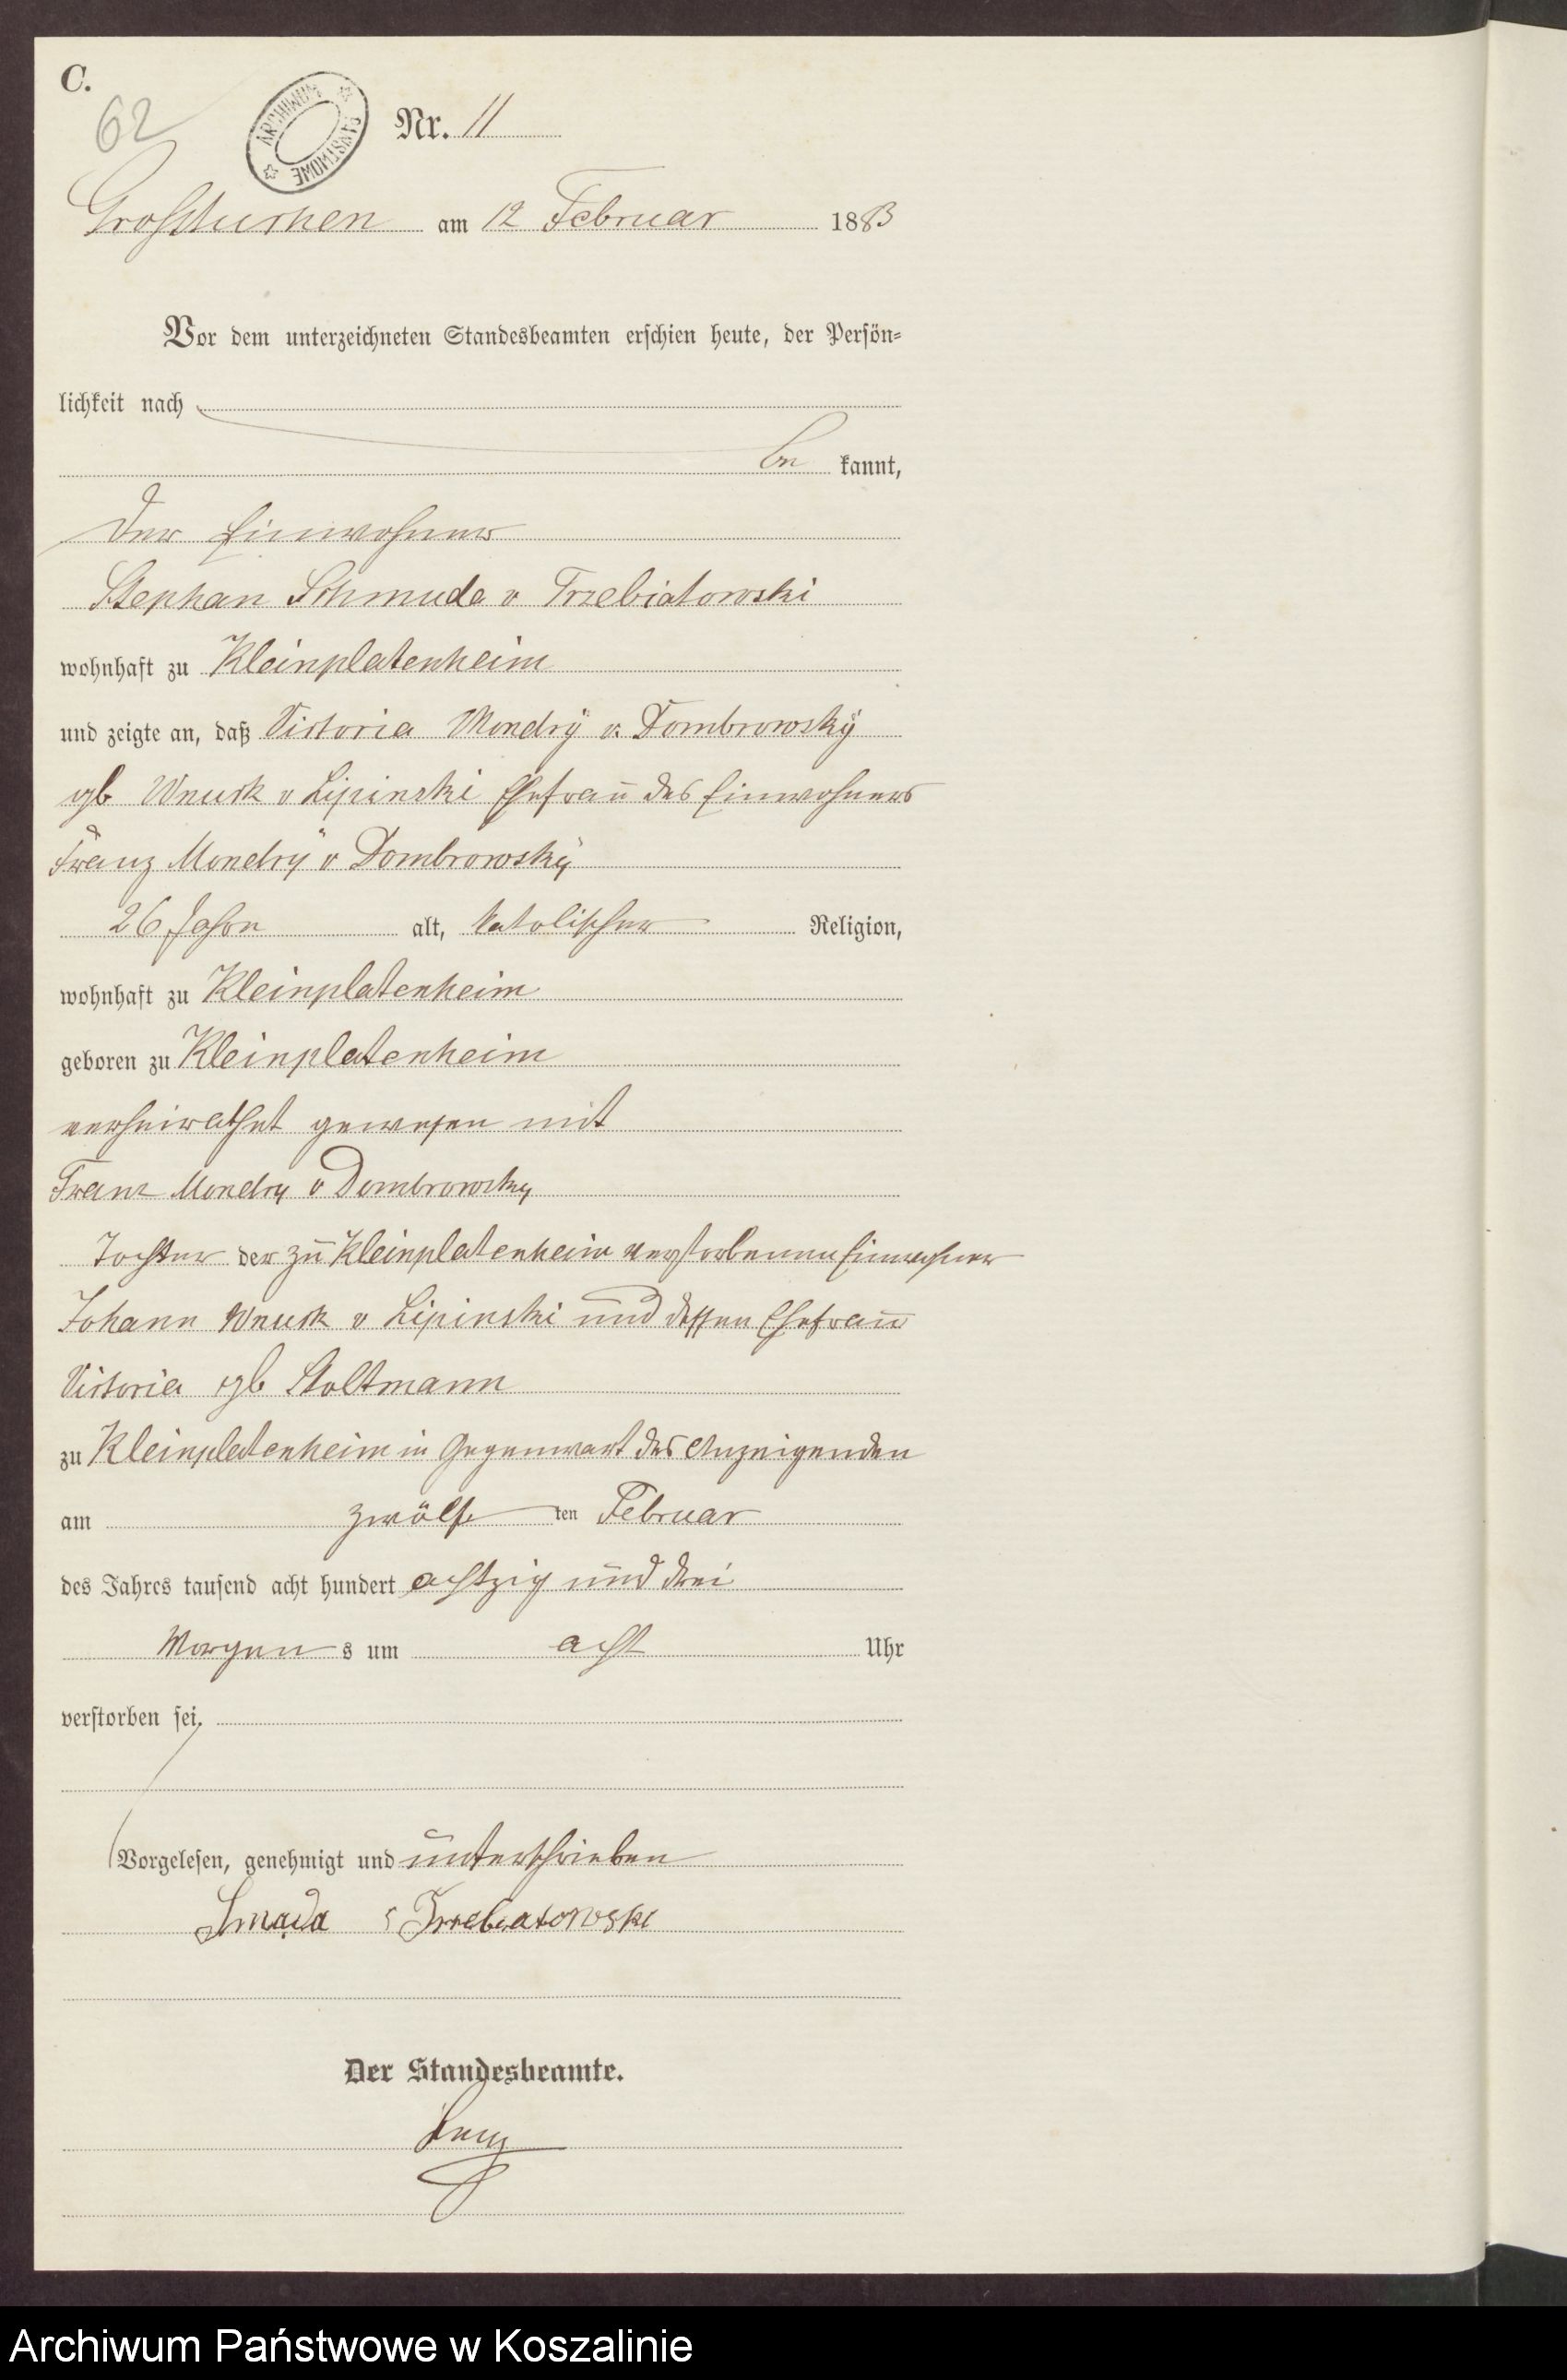 C.
62
ARCHIWUM PAŃSTWOWE
Nr. 11
Großtuchen am 12 Februar 1883
Vor dem unterzeichneten Standesbeamten erschien heute, der Persön=
lichkeit nach
be kannt,
der Einwohner
Stephan Schmude v Trzebiatowski
wohnhaft zu Kleinplatenheim
und zeigte an, daß Victoria Mondrÿ v. Dombrowskÿ
gb Wnuck v Lipinski Ehefrau des Einwohners
Franz Mondrÿ v Dombrowskÿ
26 Jahre alt, katolischer Religion,
wohnhaft zu Kleinplatenheim
geboren zu Kleinplatenheim
verheirathet gewesen mit
Franz Mondry v Dombrowsky
Tochter der zu Kleinplatenheim verstorbenen Einwohner
Johann Wnuck v Lipinski und dessen Ehefrau
Victoria gb Stoltmann
zu Kleinplatenheim in Gegenwart des Anzeigenden
am zwölf ten Februar
des Jahres tausend acht hundert achtzig und drei
Morgen s um acht Uhr
verstorben sei.
Vorgelesen, genehmigt und unterschrieben
Smuda v Trzebiatowski
Der Standesbeamte.
Archiwum Państwowe w Koszalinie